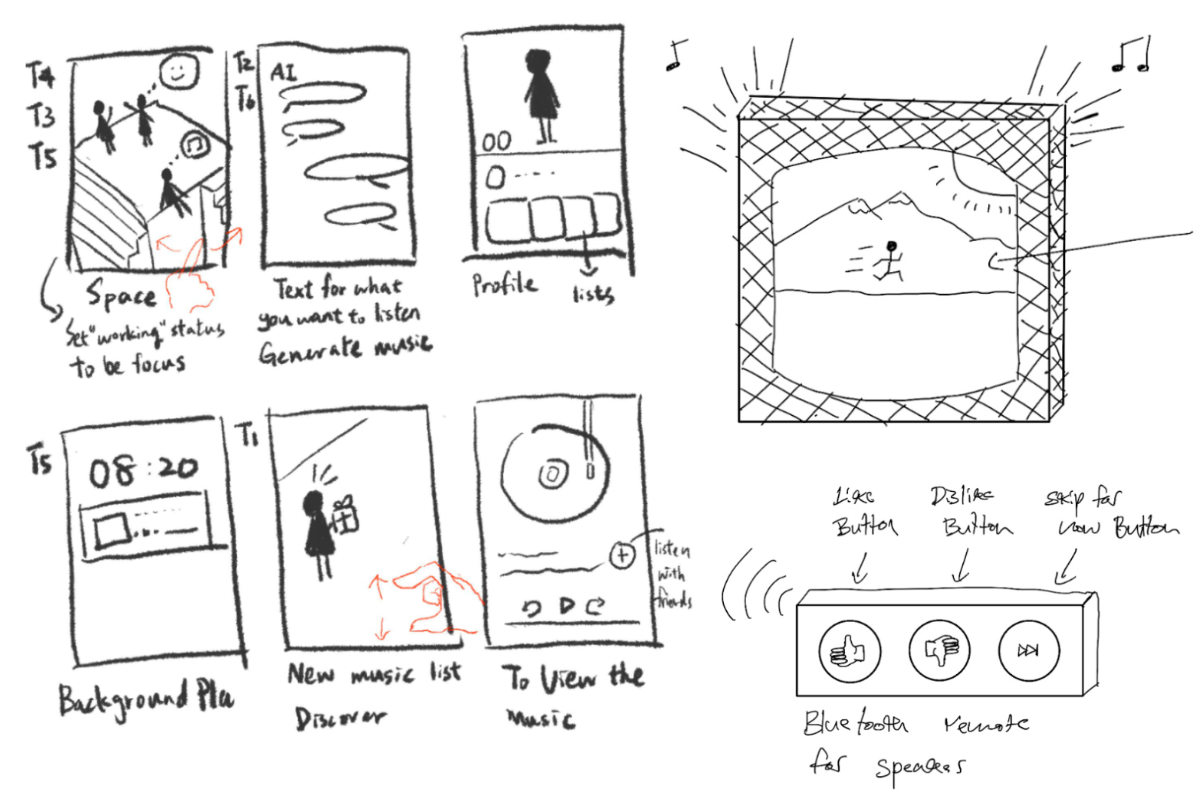 T4
T3
T5
Space
Set "working" status
to be focus
T2
T6
AI
Text for what
you want to listen
Generate music
Profile
lists
T5
08:20
Background Pla
T1
New music list
Discover
listen
with
friends
To View the
music
Like
Button
Dislike
Button
skip for
now Button
Bluetooth remote
for speakers